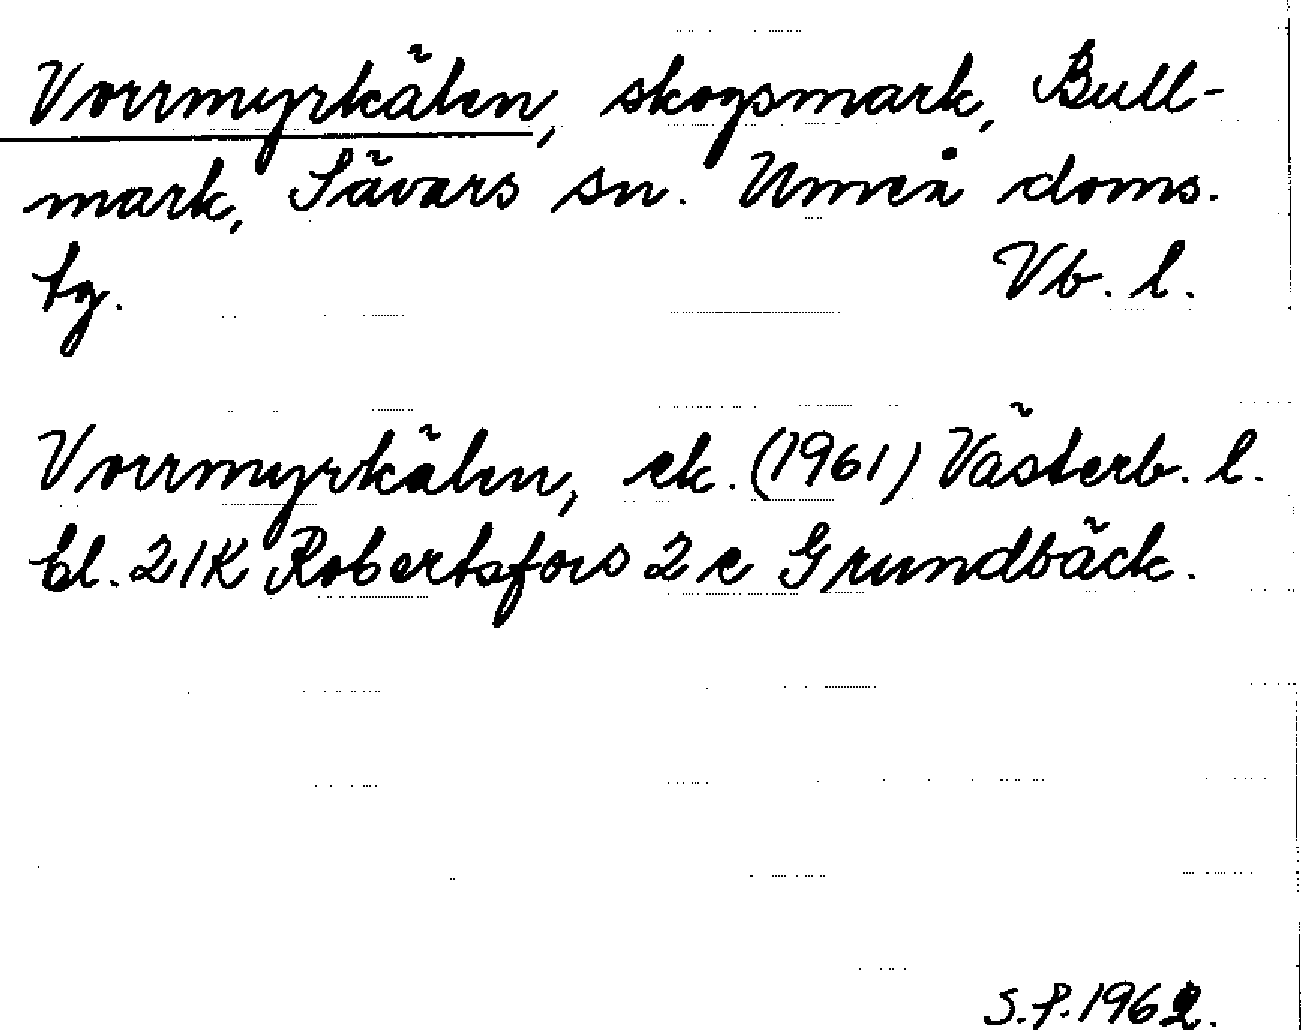 Vorrmyrkälen, skogsmark, Bull-
mark, Sävars sn. Umeå doms.
tg. Vb. l.
Vorrmyrkälen, ek. (1961) Västerb. l.
bl. 21K Robertsfors 2 e Grundbäck.
S.P. 1962.